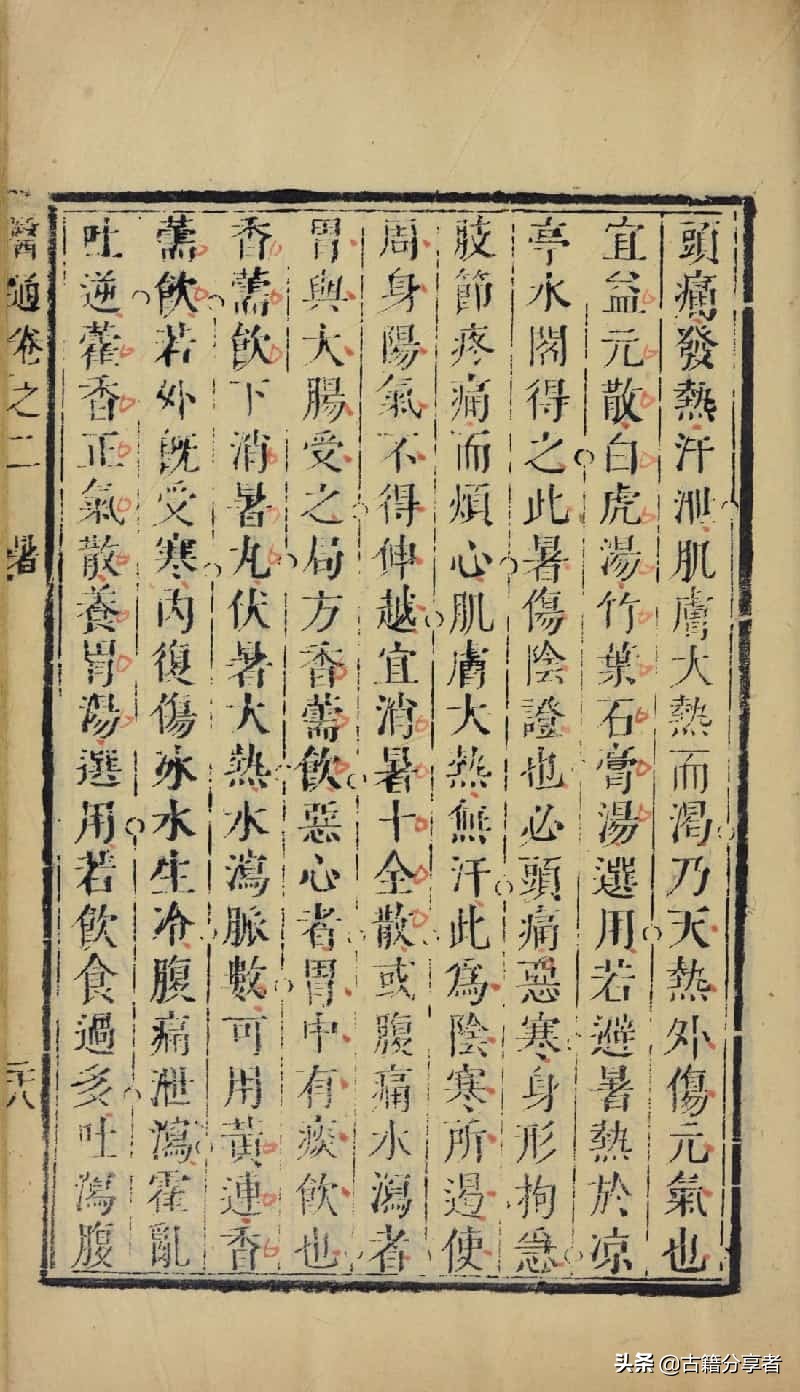 頭痛發熱汗泄肌膚大熱而渴乃天熱外傷元氣也
宜益元散白虎湯竹葉石膏湯選用若避暑熱於凉
亭水閣得之此暑傷陰證也必頭痛惡寒身形拘急
肢節疼痛而煩心肌膚大热無汗此爲陰寒所遏使
周身陽氣不得伸越宜消暑十全散或腹痛水瀉者
胃與大腸受之局方香薷飲惡心者胃中有痰飲也
香薷飲下消暑丸伏暑大熱水瀉脈數可用黃連香
薷飲若外旣受寒內復傷冰水生冷腹痛泄瀉霍亂
吐逆藿香正氣散養胃湯選用若飲食過多吐瀉腹
醫通卷之二 暑 二十八
头条 @古籍分享者